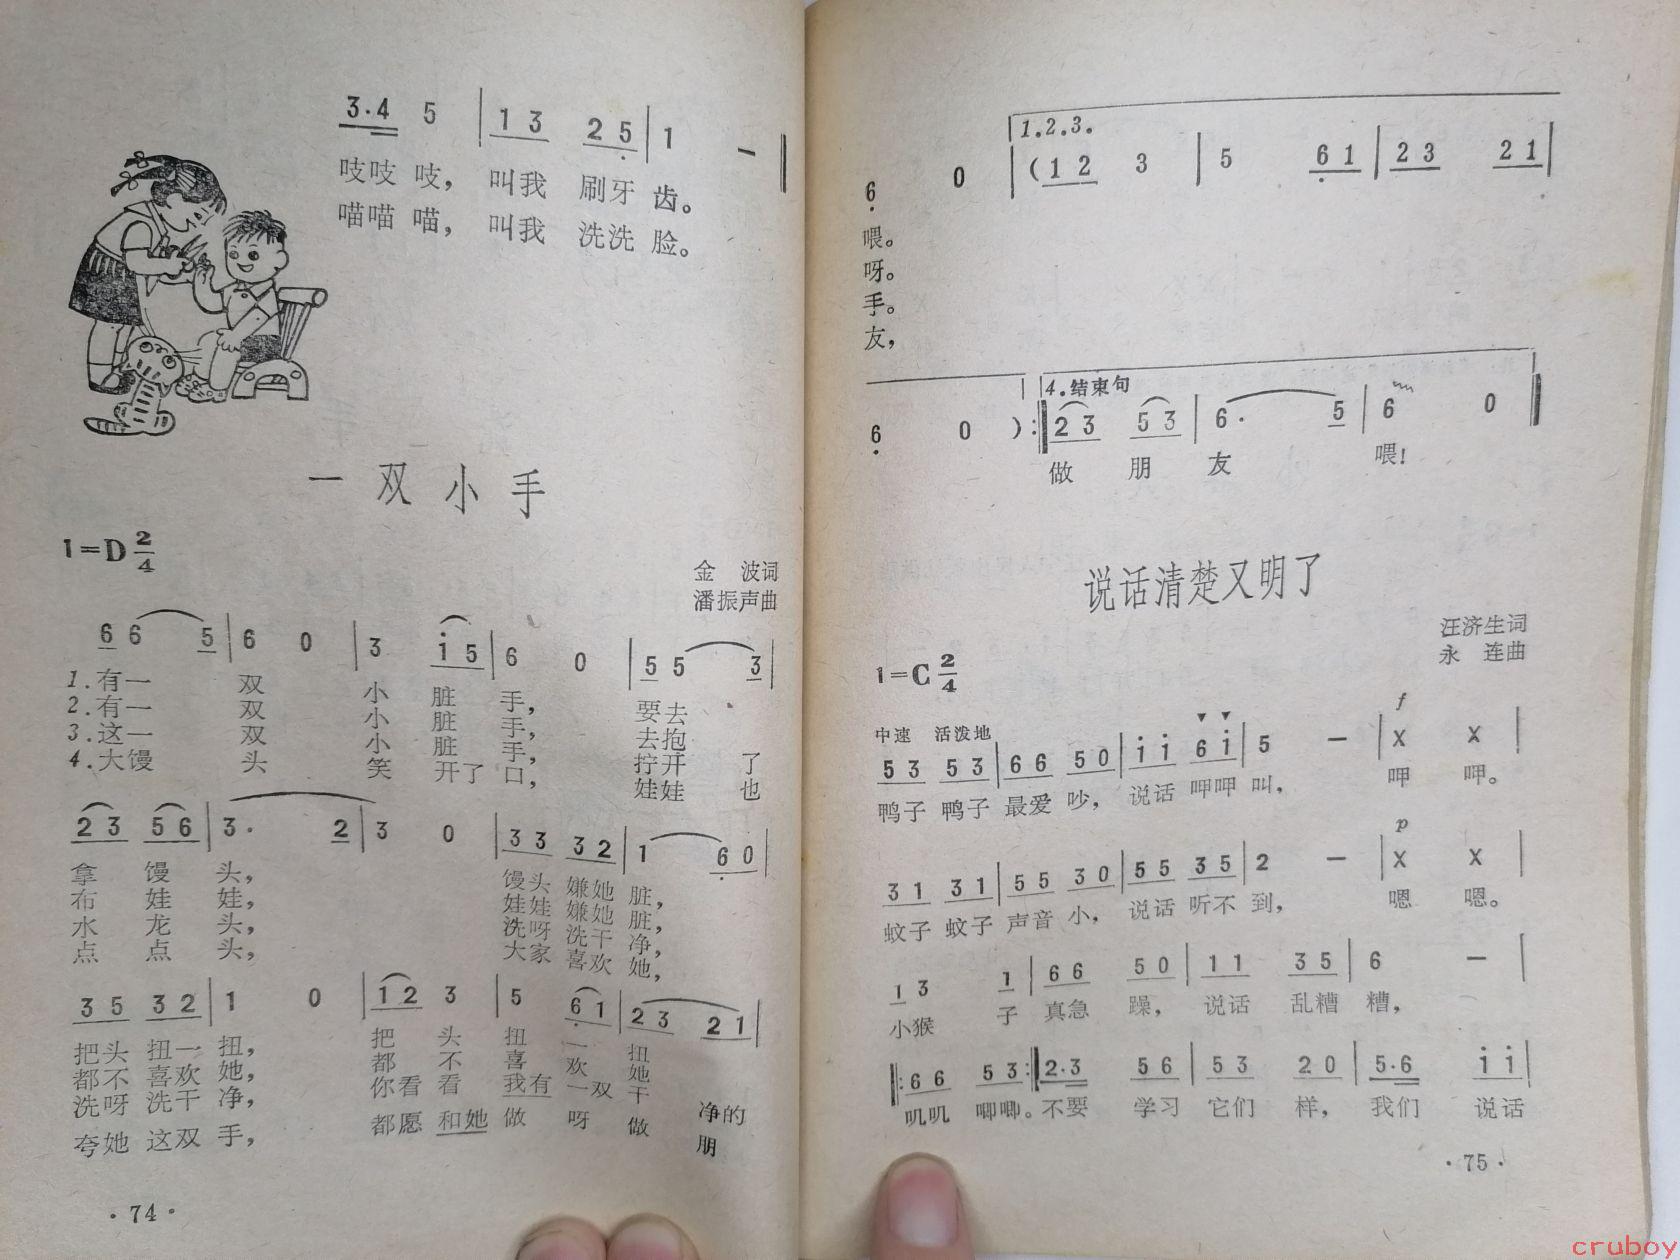 3·4 5 | 1 3 2 5 | 1 — ‖
吱吱 吱， 叫我 刷牙 齿。
喵喵 喵， 叫我 洗洗 脸。
一双小手
1=D 2/4
金 波词
潘振声曲
6 6 5 | 6 0 | 3 i 5 | 6 0 | 5 5 3 |
1.有一 双 小 脏 手， 要去
2.有一 双 小 脏 手， 去抱
3.这一 双 小 脏 手， 拧开 了
4.大馒 头 笑 开了 口， 娃娃 也
2 3 5 6 | 3· 2 | 3 0 | 3 3 3 2 | 1 6 0 |
拿 馒 头， 馒头 嫌她 脏，
布 娃 娃， 娃娃 嫌她 脏，
水 龙 头， 洗呀 洗干 净，
点 点 头， 大家 喜欢 她，
3 5 3 2 | 1 0 | 1 2 3 | 5 6 1 | 2 3 2 1 |
把头 扭一 扭， 把 头 扭 一 扭
都不 喜欢 她， 都 不 喜 欢 她
洗呀 洗干 净， 你看 看 我有 一双 干 净的
夸她 这双 手， 都愿 和她 做 呀 做 朋
·74·
1.2.3.
6 0 | (1 2 3 | 5 6 1 | 2 3 2 1 |
喂。
呀。
手。
友，
4.结束句
6 0 ):‖ 2 3 5 3 | 6· 5 | 6 0 ‖
做 朋 友 喂！
说话清楚又明了
汪济生词
永 连曲
1=C 2/4
中速 活泼地
f
5 3 5 3 | 6 6 5 0 | i i 6 i | 5 — | X X |
鸭子 鸭子 最爱 吵， 说话 呷呷 叫， 呷 呷。
p
3 1 3 1 | 5 5 3 0 | 5 5 3 5 | 2 — | X X |
蚊子 蚊子 声音 小， 说话 听不 到， 嗯 嗯。
1 3 1 | 6 6 5 0 | 1 1 3 5 | 6 — |
小猴 子 真急 躁， 说话 乱糟 糟，
‖: 6 6 5 3 :‖ 2·3 5 6 | 5 3 2 0 | 5·6 i i |
叽叽 唧唧。不要 学习 它们 样， 我们 说话
·75·
cruboy